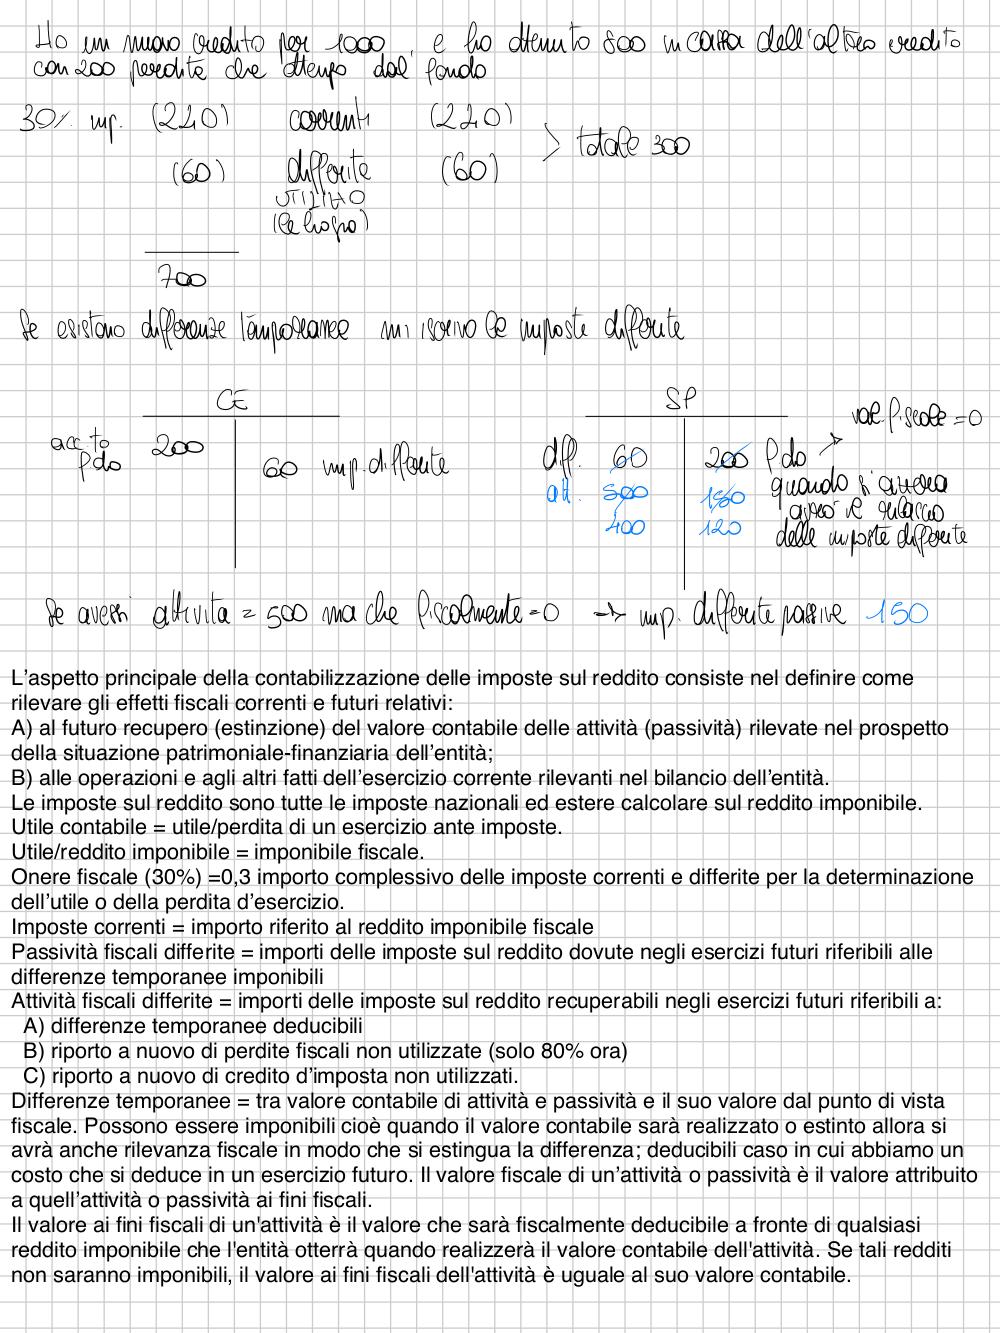 Ho un nuovo credito per 1000, e ho ottenuto 800 in cassa dell'altro credito
con 200 perdite che attengo dal fondo
30% imp. (240) correnti (240)
> totale 300
(60) differite (60)
UTILIZZO
(le ho già)
700
Se esistono differenze temporanee mi iscrivo le imposte differite
CE SP
val. fiscale = 0
acc.to 200 diff. 60 200 fdo
fdo 60 imp. differite
att. 500 150 quando si azzera
avrò il rilascio
400 120 delle imposte differite
Se avessi attività = 500 ma che fiscalmente = 0 → imp. differite passive 150
L'aspetto principale della contabilizzazione delle imposte sul reddito consiste nel definire come
rilevare gli effetti fiscali correnti e futuri relativi:
A) al futuro recupero (estinzione) del valore contabile delle attività (passività) rilevate nel prospetto
della situazione patrimoniale-finanziaria dell'entità;
B) alle operazioni e agli altri fatti dell'esercizio corrente rilevanti nel bilancio dell'entità.
Le imposte sul reddito sono tutte le imposte nazionali ed estere calcolare sul reddito imponibile.
Utile contabile = utile/perdita di un esercizio ante imposte.
Utile/reddito imponibile = imponibile fiscale.
Onere fiscale (30%) =0,3 importo complessivo delle imposte correnti e differite per la determinazione
dell'utile o della perdita d'esercizio.
Imposte correnti = importo riferito al reddito imponibile fiscale
Passività fiscali differite = importi delle imposte sul reddito dovute negli esercizi futuri riferibili alle
differenze temporanee imponibili
Attività fiscali differite = importi delle imposte sul reddito recuperabili negli esercizi futuri riferibili a:
A) differenze temporanee deducibili
B) riporto a nuovo di perdite fiscali non utilizzate (solo 80% ora)
C) riporto a nuovo di credito d'imposta non utilizzati.
Differenze temporanee = tra valore contabile di attività e passività e il suo valore dal punto di vista
fiscale. Possono essere imponibili cioè quando il valore contabile sarà realizzato o estinto allora si
avrà anche rilevanza fiscale in modo che si estingua la differenza; deducibili caso in cui abbiamo un
costo che si deduce in un esercizio futuro. Il valore fiscale di un'attività o passività è il valore attribuito
a quell'attività o passività ai fini fiscali.
Il valore ai fini fiscali di un'attività è il valore che sarà fiscalmente deducibile a fronte di qualsiasi
reddito imponibile che l'entità otterrà quando realizzerà il valore contabile dell'attività. Se tali redditi
non saranno imponibili, il valore ai fini fiscali dell'attività è uguale al suo valore contabile.